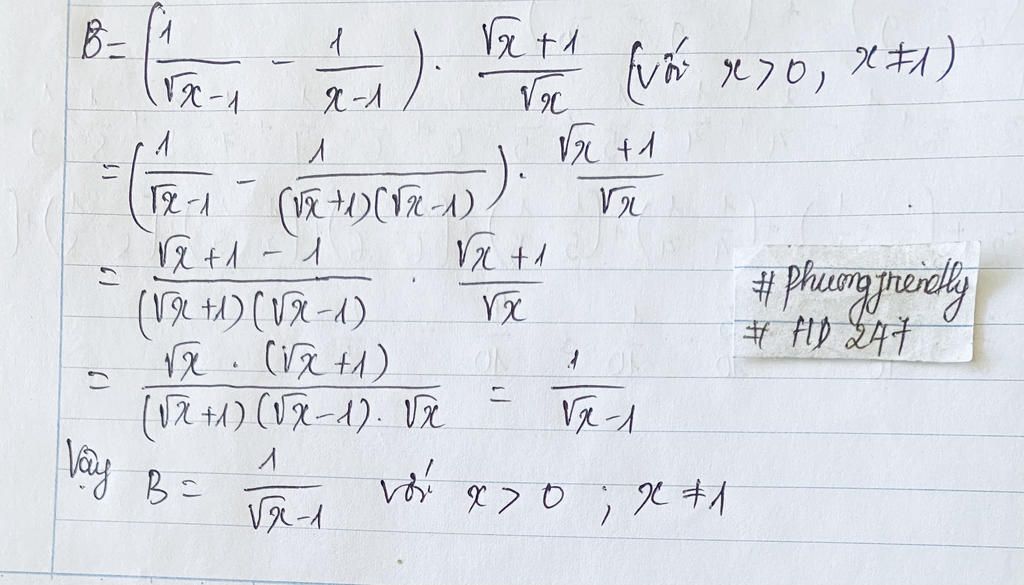 B = (1/(√x-1) - 1/(x-1)) . (√x+1)/√x (với x>0, x≠1)
= (1/(√x-1) - 1/((√x+1)(√x-1))) . (√x+1)/√x
= (√x+1-1)/((√x+1)(√x-1)) . (√x+1)/√x
= (√x . (√x+1))/((√x+1)(√x-1).√x) = 1/(√x-1)
Vậy B = 1/(√x-1) với x>0 ; x≠1
# phuongfriendly
# HD 247